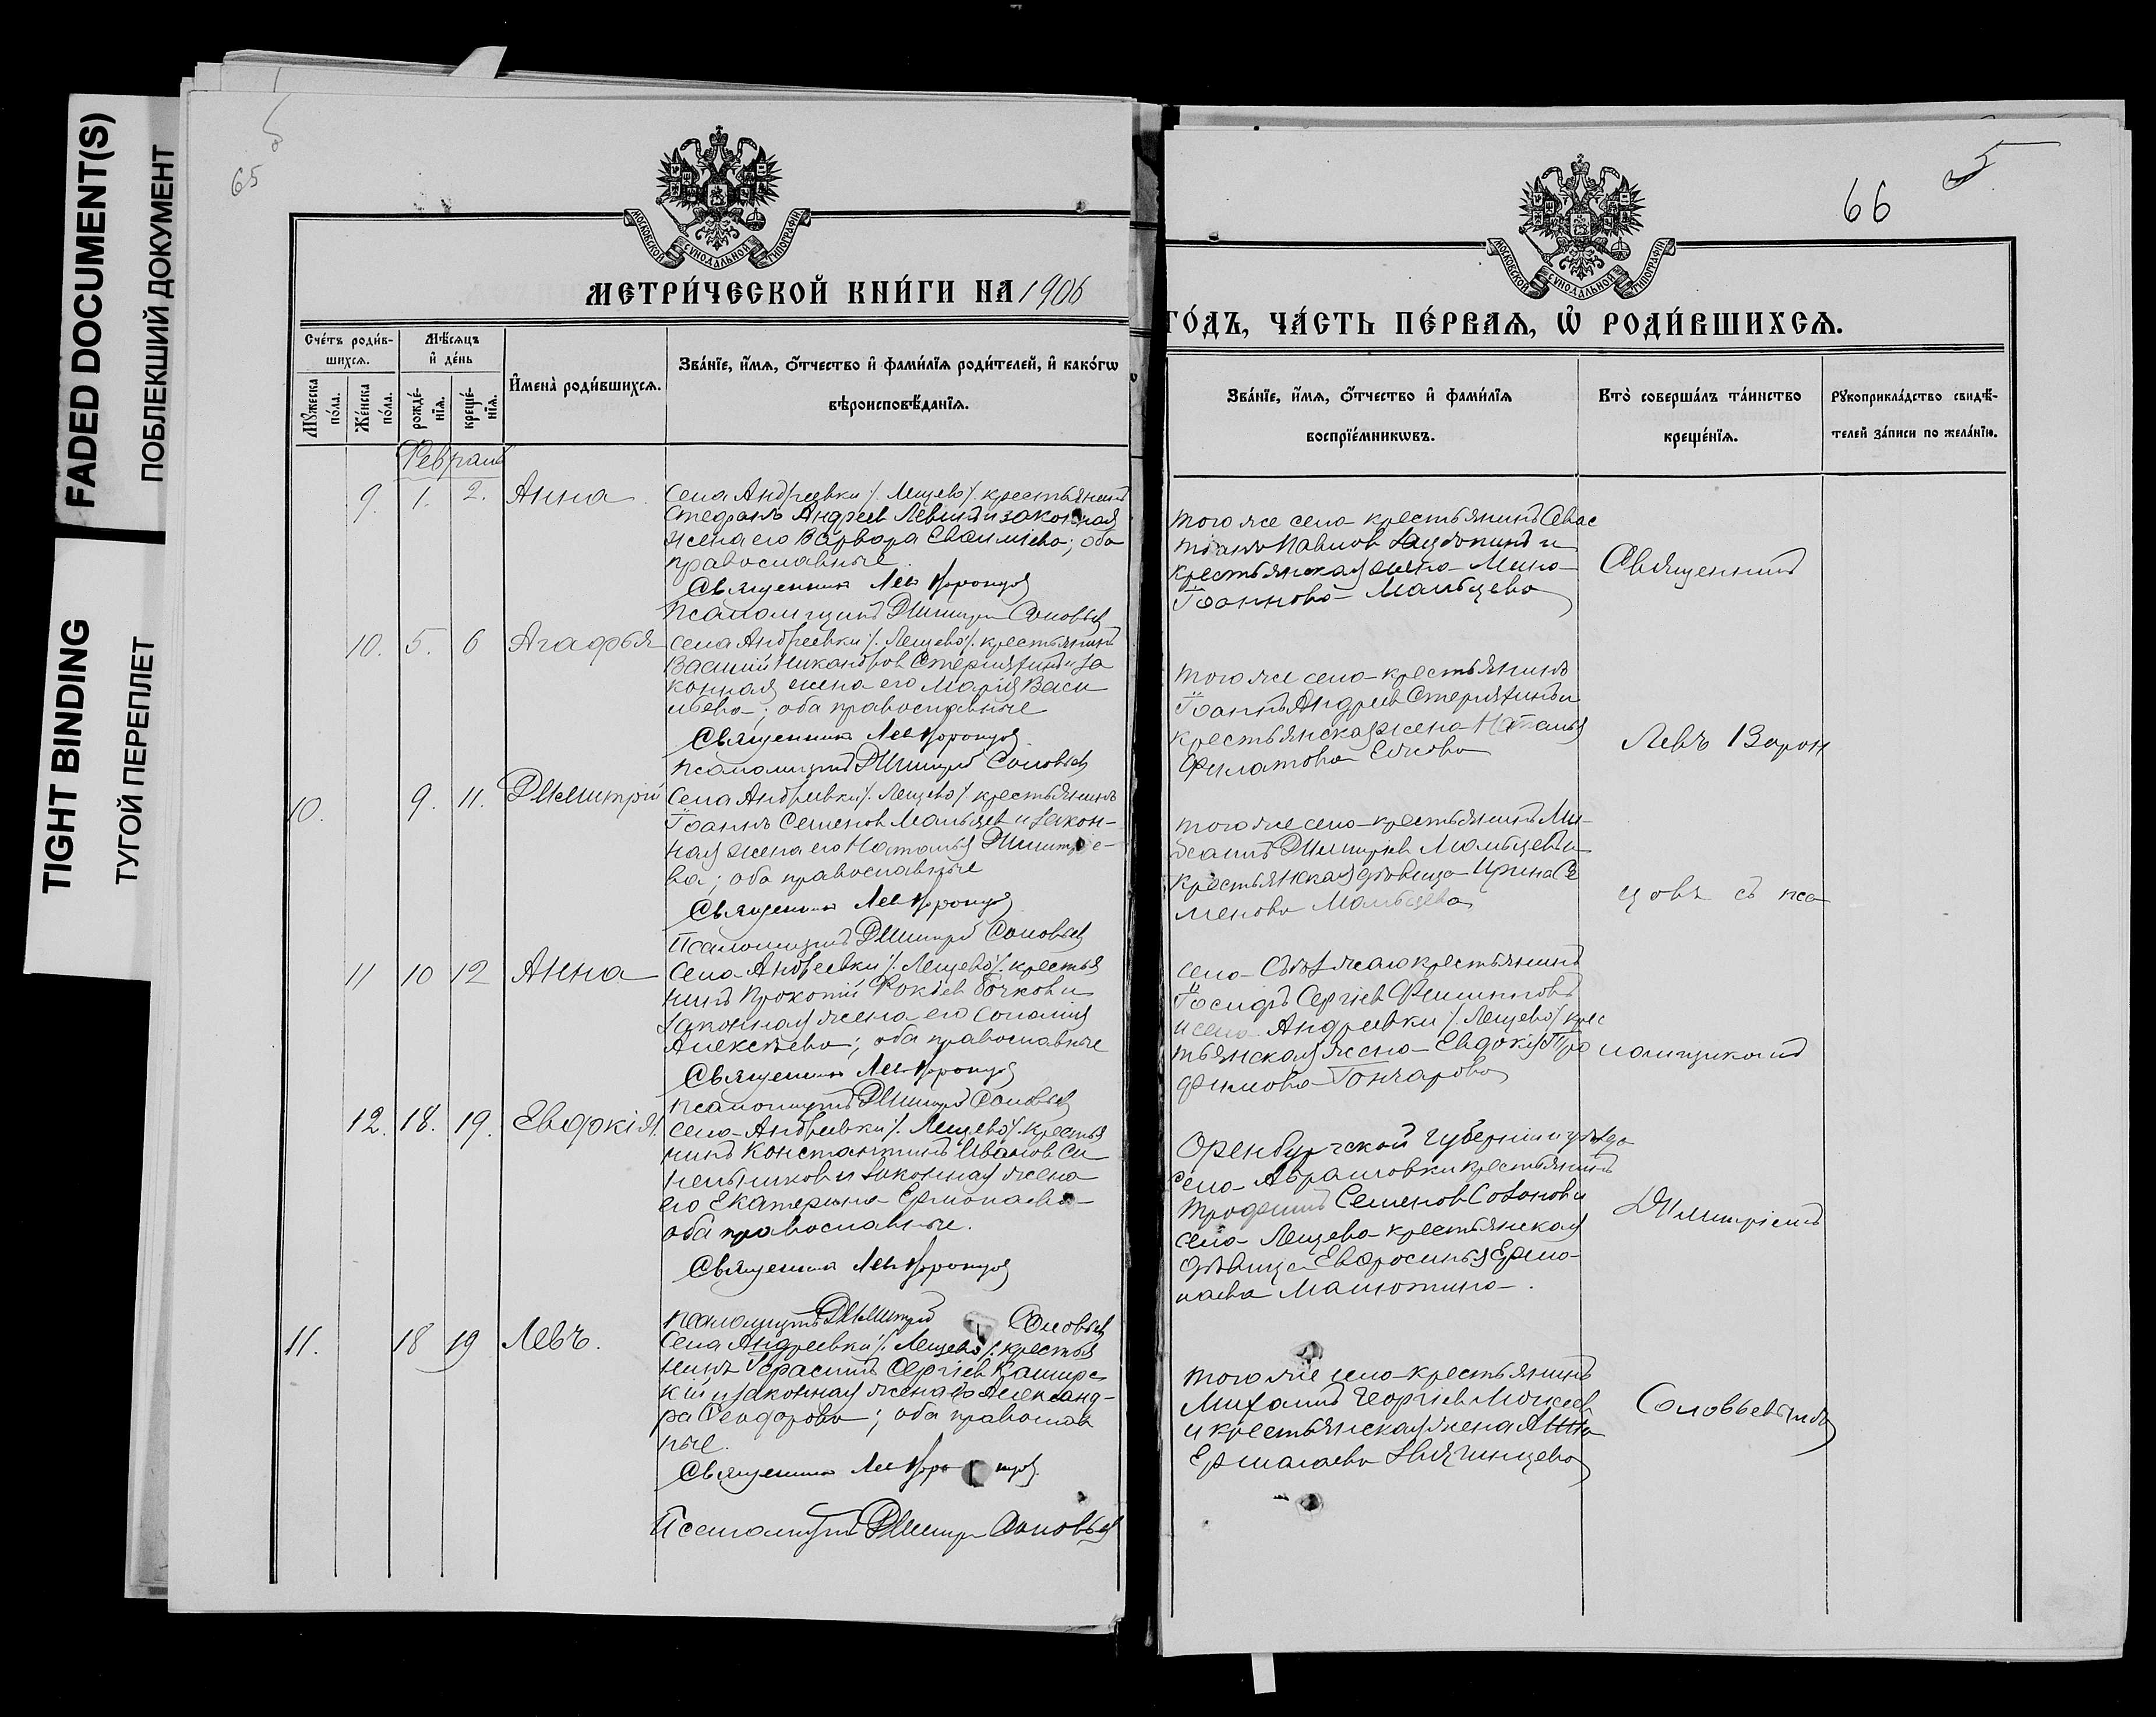 FADED DOCUMENT(S)
ПОБЛЕКШИЙ ДОКУМЕНТ
TIGHT BINDING
ТУГОЙ ПЕРЕПЛЕТ
65
5
МОСКОВСКОЙ СѴНОДАЛЬНОЙ ТИПОГРАФІИ
МЕТРИ́ЧЕСКОЙ КНИ́ГИ НА 1906
Сче́тъ роди́в-
шихсѧ.
Мѣ́сѧцъ
и҆ де́нь
Мꙋжеска
по́ла.
Же́нска
по́ла.
рожде́-
нїѧ.
креще́-
нїѧ.
И҆мена̀ роди́вшихсѧ.
Зва́нїе, и҆́мѧ, ѻ҆́тчество и҆ фами́лїѧ роди́телей, и҆ како́гѡ
вѣроисповѣ́данїѧ.
Февраль
9. 1. 2. Анна
Села Андреевки /. Лещево /. крестьянинъ
Стефанъ Андреев Левинъ и законная
жена его Варвара Евфимiева; оба
православные.
Священникъ Лев Воронцов
Псаломщикъ Дмитрiй Соловьев
10. 5. 6 Агафья
Села Андреевки /. Лещево /. крестьянинъ
Василiй Никандров Стерляхинъ и за
конная жена его Марiя Васи
льева; оба православные
Священникъ Лев Воронцов
Псаломщикъ Дмитрiй Соловьев
10. 9. 11. Дмитрiй
Села Андреевки /. Лещево /. крестьянинъ
Iоаннъ Семенов Мальцев и закон-
ная жена его Наталья Дмитрiе-
ва; оба православные
Священникъ Лев Воронцов
Псаломщикъ Дмитрiй Соловьев
11 10 12 Анна
Села Андреевки /. Лещево /. крестья
нинъ Прокопiй Фокiев Бочков и
законная жена его
Алексѣева; оба православные
Священникъ Лев Воронцов
Псаломщикъ Дмитрiй Соловьев
12. 18. 19. Евдокiя.
Села Андреевки /. Лещево /. крестья
нинъ Константинъ Иванов Си
нельников и законная жена
его Екатерина Ермолаева
оба православные.
Священникъ Лев Воронцов
Псаломщикъ Дмитрiй Соловьев
11. 18 19 Левъ.
Села Андреевки /. Лещево /. крестья
нинъ Герасимъ Сергiев Каширс
кiй и законная жена его Александ-
ра Феодорова; оба православ
ные.
Священникъ Лев Воронцов.
Псаломщикъ Дмитрiй Соловьев
66
5
МОСКОВСКОЙ СѴНОДАЛЬНОЙ ТИПОГРАФІИ
ГО́ДЪ, ЧА́СТЬ ПЕ́РВАѦ, Ѽ РОДИ́ВШИХСѦ.
Зва́нїе, и҆́мѧ, ѻ҆́тчество и҆ фами́лїѧ
воспрїе́мникѡвъ.
Кто̀ соверша́лъ та́инство
креще́нїѧ.
Рꙋкоприкла́дство свидѣ́-
телей за́писи по жела́нїю.
того же села крестьянинъ Севас
тiанъ Павлов и
крестьянская жена
Iоаннова Мальцева
того же села крестьянинъ
Iоаннъ Андреев Стерляхинъ и
крестьянская жена Наталья
Филатова
того же села крестьянинъ Ми-
хаилъ Дмитрiев Мальцев и
крестьянская дѣвица Ирина Се
менова Мальцева
села крестьянинъ
Iосифъ Сергiев Филипповъ
и села Андреевки /. Лещево /. крес
тьянская жена Евдокiя Тро
фимова Гончарова
Оренбургской губернiи и уѣзда
села Абрамовки крестьянинъ
Трофимъ Семенов и
села Лещева крестьянская
дѣвица Евфросинья Ермо-
лаева Малютина.
того же села крестьянинъ
Михаилъ Георгiев
и крестьянская жена Анна
Ермолаева
Священникъ
Левъ Ворон
цовъ съ пса
ломщикомъ
Дмитрiемъ
Соловьевымъ